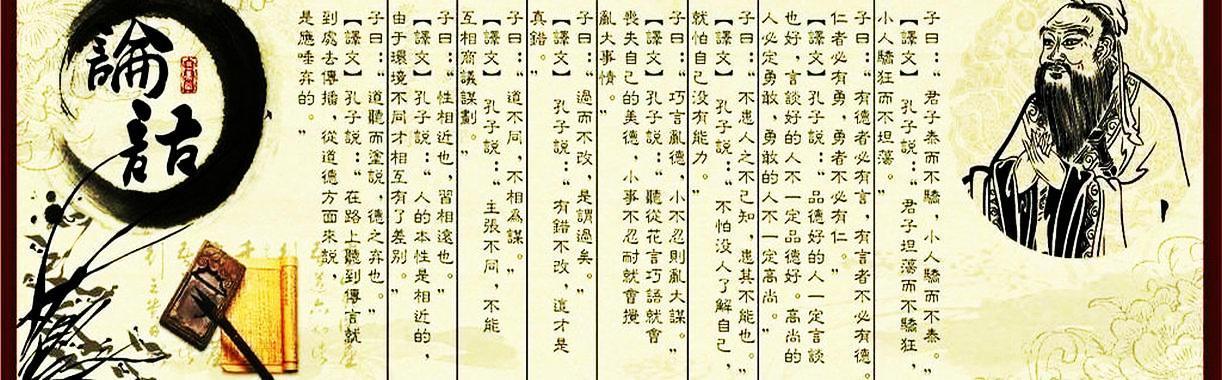 子曰：“君子泰而不驕，小人驕而不泰。”
【譯文】 孔子説：“君子坦蕩而不驕狂，
小人驕狂而不坦蕩。”
子曰：“有德者必有言，有言者不必有德。
仁者必有勇，勇者不必有仁。”
【譯文】孔子説：“品德好的人一定言談
也好，言談好的人不一定品德好。高尚的
人必定勇敢，勇敢的人不一定高尚。”
子曰：“不患人之不己知，患其不能也。”
【譯文】 孔子説：“不怕没人了解自己，
就怕自己没有能力。”
子曰：“巧言亂德，小不忍則亂大謀。”
【譯文】 孔子説：“聽從花言巧語就會
喪失自己的美德，小事不忍耐就會攪
亂大事情。”
子曰：“過而不改，是謂過矣。”
【譯文】 孔子説：“有錯不改，這才是
真錯。”
子曰：“道不同，不相為謀。”
【譯文】 孔子説：“主張不同，不能
互相商議謀劃。”
子曰：“性相近也，習相遠也。”
【譯文】孔子説：“人的本性是相近的，
由于環境不同才相互有了差别。”
子曰：“道聽而塗説，德之弃也。”
【譯文】孔子説：“在路上聽到傳言就
到處去傳播，從道德方面來説，
是應唾弃的。”
論語